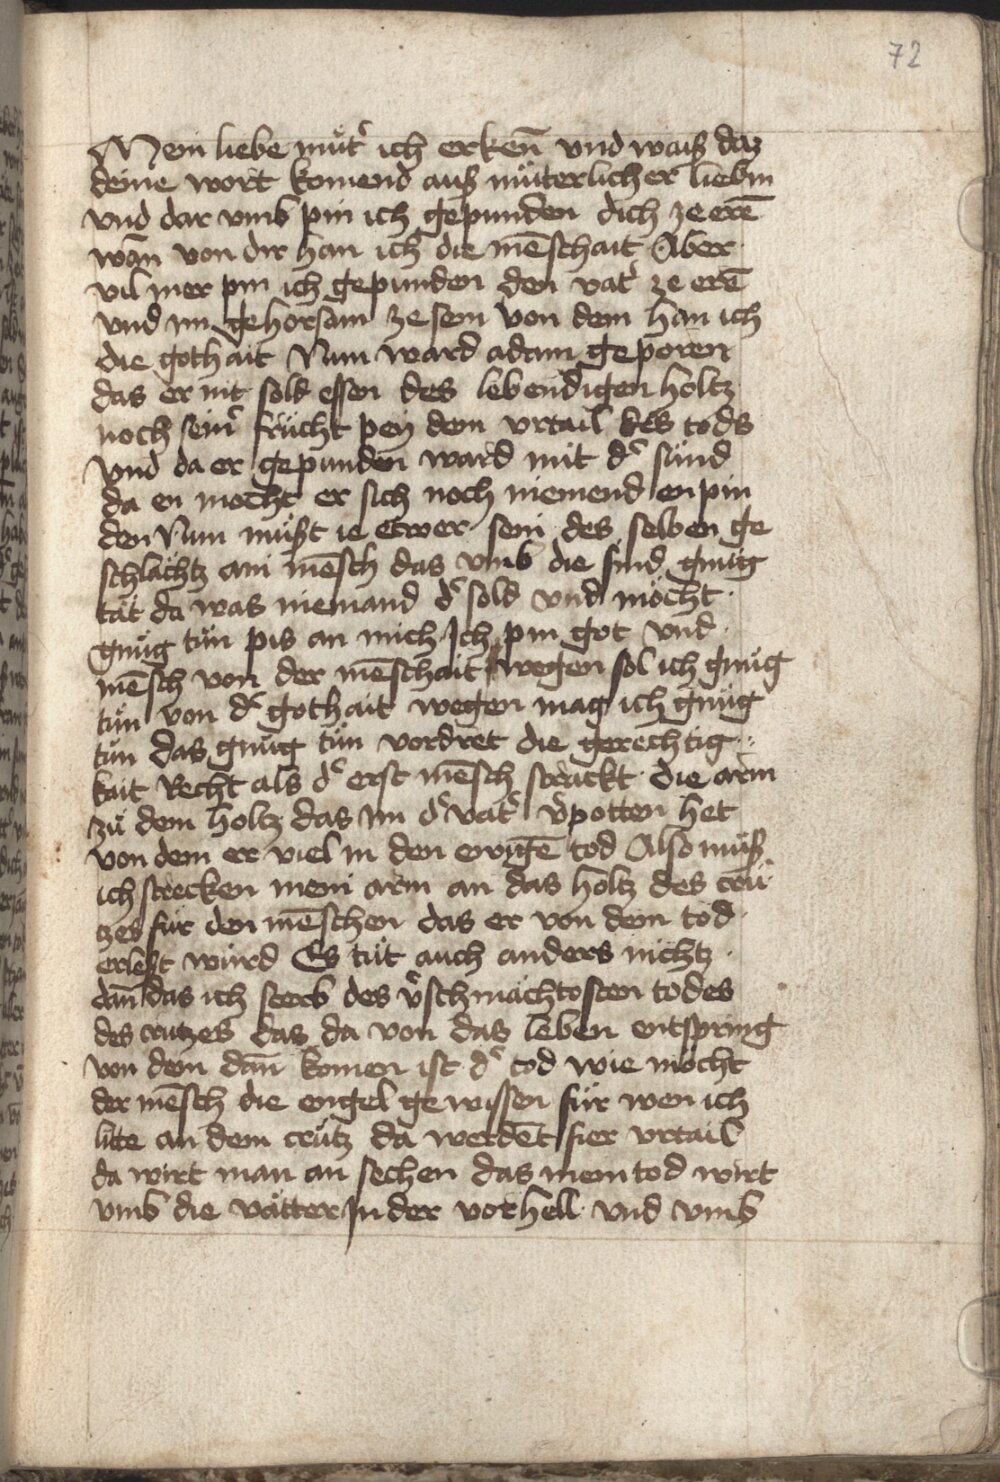 72
Mein liebe mut̉ ich erken̄ vnd waiß daz
deine wort komend auß müterlicher liebin
vnd dar vmb pin ich gepunden dich ze erē
wan̄ von dir han ich die mēschait Aber
vil mer pin ich gepunden den vat̉ ze erē
vnd im gehorsam ze sein von dem han ich
die gothait Nun ward adam geporen
das er nit sold essen des lebendigen holtz
noch sein̉ frücht pey dem vrtail des tods
Vnd da er gepunden ward mit d̉ sünd
da en mocht er sich noch niemend enpin
den Nun müßt ie etwer sein des selben ge
schlächtz ain mēsch das vmb die sünd gnüg
tät da was niemand d̉ sold vnd möcht
gnüg tün pis an mich Ich pin got vnd
mēsch von der mēschait wegen sol ich gnüg
tün von d̉ gothait wegen mag ich gnüg
tün das gnüg tün vordret die gerechtig
kait Recht als d̉ erst mēsch strackt die arm
zü dem holtz das im d̉ vat̉ v̉potten het
von dem er viel in den ewigē tod Also müß
ich strecken mein arm an das holtz des crü
tzes für den mēschen das er von dem tod
erlest würd Es tüt auch anders nichtz
dan̄ das ich sterb des v̉schmächtosten todes
des crützes das da von das leben entspring
von dem dan̄ komen ist d̉ tod wie möcht
der mēsch die engel gewissen für wen ich
lite an dem crütz da werdēt fier vrtail
da wirt man an sechen das mein tod wirt
vmb die vätter In der vorhell vnd vmb